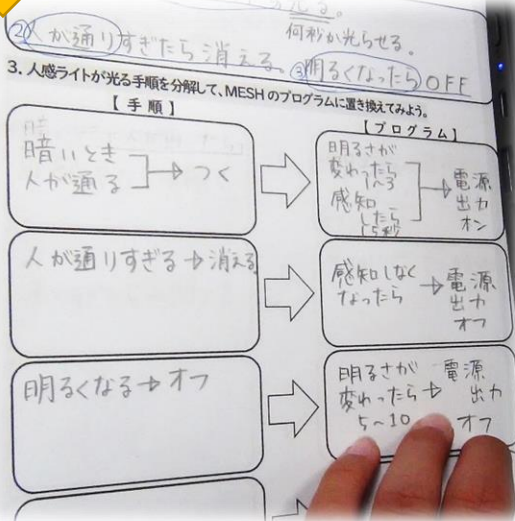 光る。
何秒か光らせる。
② 人が通りすぎたら消える。 ③ 明るくなったら OFF
3. 人感ライトが光る手順を分解して、MESHのプログラムに置き換えてみよう。
【手順】
暗いとき
人が通る
→ つく
【プログラム】
明るさが
変わったら
1〜3
感知
したら
15秒
→ 電源
出力
オン
人が通りすぎる → 消える
感知しなく
なったら
→ 電源
出力
オフ
明るくなる → オフ
明るさが
変わったら
5〜10
→ 電源
出力
オフ